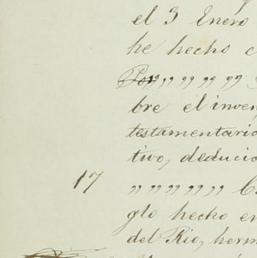 el 3 Enero
he hecho c
Por,, ,, ,, ,, ,,
bre el inven
testamentario
tivo, deducio
17 ,, ,, ,, ,, ,, ,, C
glo hecho en
del Rio, herm